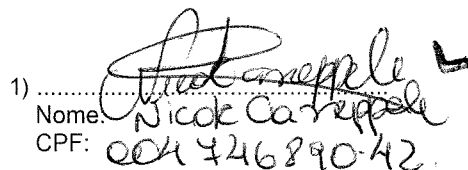 1) ........................................
Nome: Nicole Careppele
CPF: 004 746 890-42